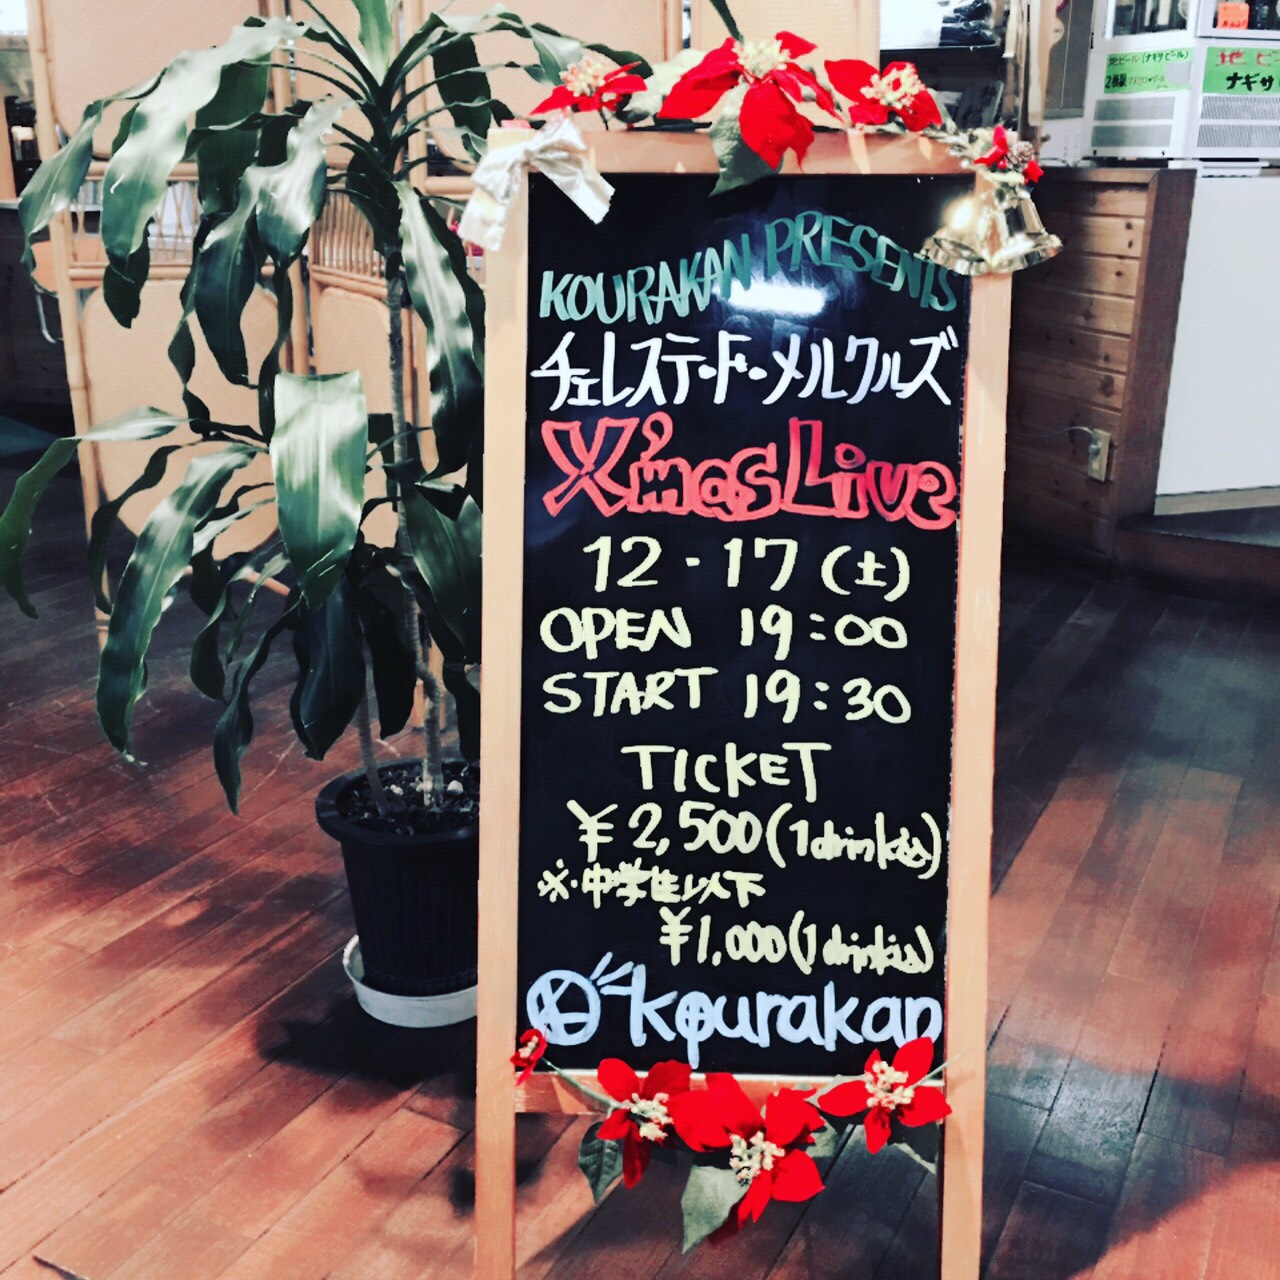 KOURAKAN PRESENTS
チェレステ・F・メルクルズ
X'mas Live
12・17(土)
OPEN 19:00
START 19:30
TICKET
¥2,500(1drink込)
※・中学生以下
¥1,000(1drink込)
kourakan
地ビール(ナギサビール)
地ビ
ナギサ